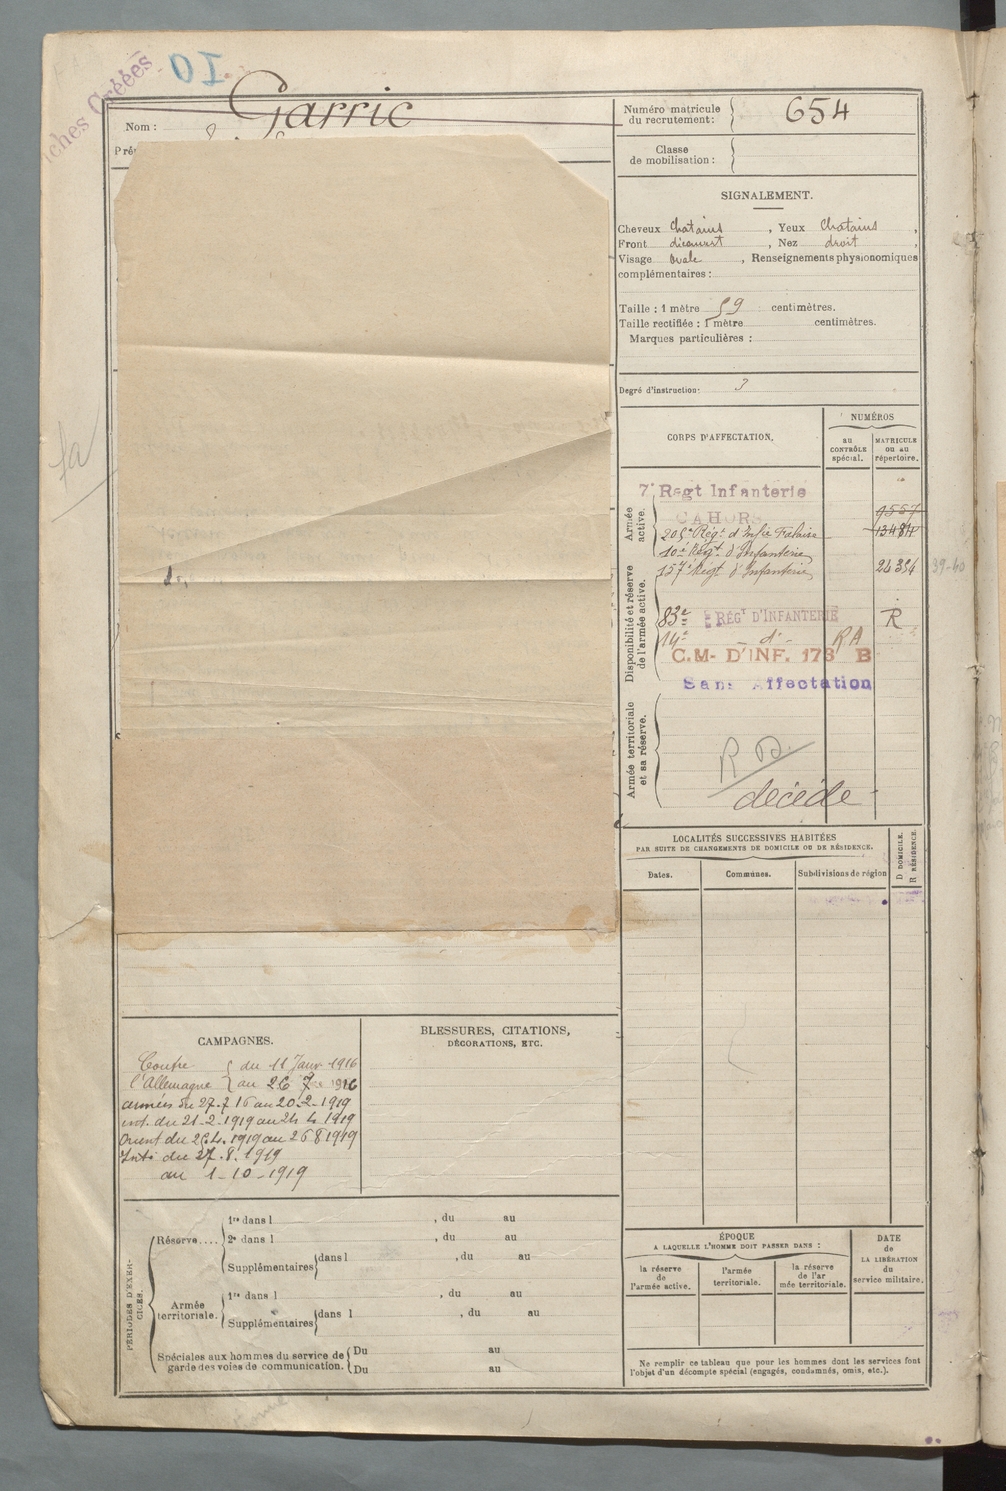 Fiches Créées
Garric
Nom :
Numéro matricule du recrutement : 654
Classe de mobilisation :
SIGNALEMENT.
Cheveux chatains, Yeux chatains,
Front découvert, Nez droit,
Visage ovale, Renseignements physionomiques
complémentaires :
Taille : 1 mètre 59 centimètres.
Taille rectifiée : 1 mètre centimètres.
Marques particulières :
Degré d'instruction : 3
CORPS D'AFFECTATION.
NUMÉROS
au CONTRÔLE spécial.
MATRICULE ou au répertoire.
Armée active.
7e Regt Infanterie
CAHORS
9557
205e Régt d'Infie Falaise 13484
10e Régt d'Infanterie
Disponibilité et réserve de l'armée active.
157e Régt d'Infanterie 24354 39-40
83e RÉGT D'INFANTERIE R
14e - d° - RA
C.M- D'INF. 173 B
Sans Affectation
Armée territoriale et sa réserve.
décédé
LOCALITÉS SUCCESSIVES HABITÉES
PAR SUITE DE CHANGEMENTS DE DOMICILE OU DE RÉSIDENCE.
D DOMICILE.
R RÉSIDENCE.
Dates.
Communes.
Subdivisions de région
CAMPAGNES.
Contre l'Allemagne { du 11 Janv 1916
au 26 7re 1916
armées du 27-7 16 au 20-2-1919
int. du 21-2-1919 au 24 4 1919
Orient du 25.4.1919 au 26 8 1919
Inté du 27.8.1919
au 1-10-1919
BLESSURES, CITATIONS,
DÉCORATIONS, ETC.
PÉRIODES D'EXERCICES.
Réserve....
1re dans l , du au
2e dans l , du au
Supplémentaires dans l , du au
Armée territoriale.
1re dans l , du au
Supplémentaires dans l , du au
Spéciales aux hommes du service de garde des voies de communication.
Du au
Du au
ÉPOQUE
A LAQUELLE L'HOMME DOIT PASSER DANS :
la réserve de l'armée active.
l'armée territoriale.
la réserve de l'armée territoriale.
DATE de LA LIBÉRATION du service militaire.
Ne remplir ce tableau que pour les hommes dont les services font
l'objet d'un décompte spécial (engagés, condamnés, omis, etc.).